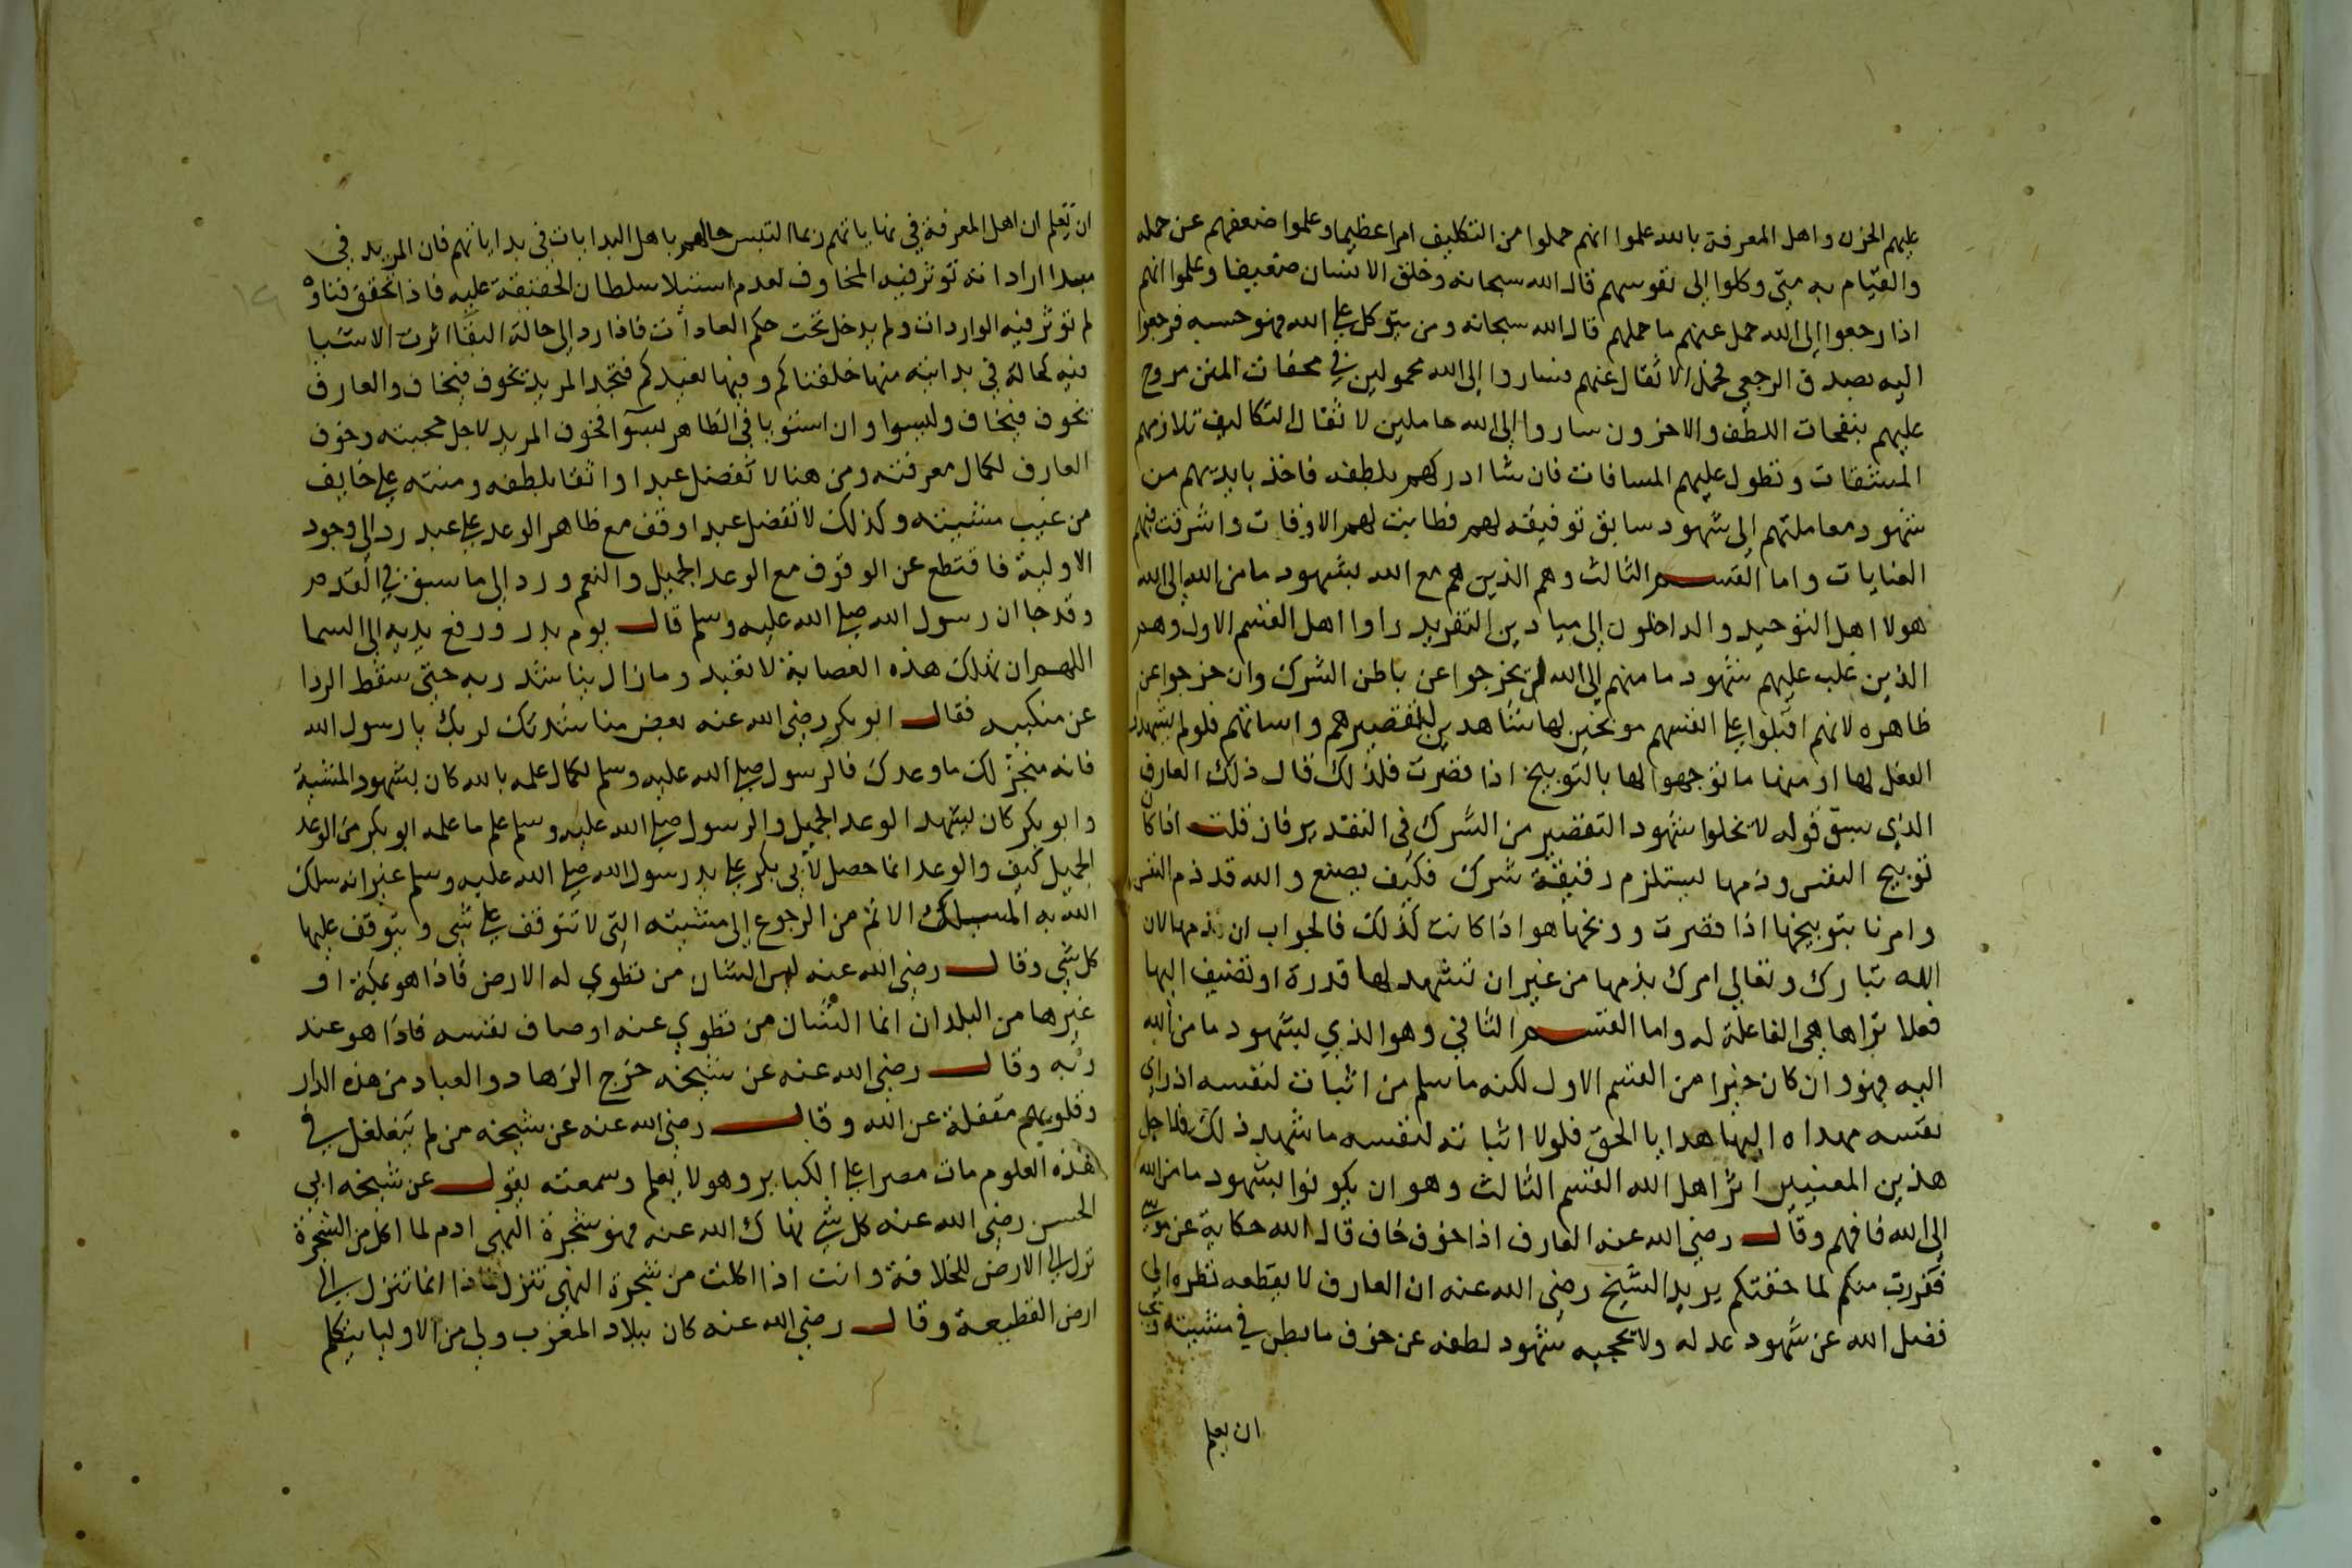 عليهم الحزن واهل المعرفة بالله علموا انهم حملوا من التكليف امرا عظيما وعلموا ضعفهم عن حمله
والقيام به متى وكلوا الى نفوسهم قال الله سبحانه وخلق الانسان ضعيفا وعلموا انهم
اذا رجعوا الى الله حمل عنهم ما حملهم قال الله سبحانه ومن يتوكل على الله فهو حسبه فرجعوا
اليه بصدق الرجعى فحمل الاثقال عنهم فساروا الى الله محمولين في محفات المنن مروح
عليهم بنفحات اللطف والاخرون ساروا الى الله حاملين لاثقال التكاليف تلازمهم
المشقات وتطول عليهم المسافات فان شا ادركهم بلطفه فاخذ بايديهم من
شهود معاملتهم الى شهود سابق توفيقه لهم فطابت لهم الاوقات واشرقت فيهم
العنايات واما القسم الثالث وهم الذين هم مع الله بشهود ما من الله الى الله
هولا اهل التوحيد والداخلون الى ميادين التفريد راوا اهل القسم الاول وهم
الذين غلب عليهم شهود ما منهم الى الله لم يخرجوا عن باطن الشرك وان خرجوا عن
ظاهره لانهم اقبلوا على انفسهم موبخين لها شاهدين لتقصيرهم واساتهم فلو لم يشهدوا
الفعل لها او منها ما توجهوا لها بالتوبيخ اذا قصرت فلذلك قال ذلك العارف
الذي سبق قوله لا تخلوا شهود التقصير من الشرك في التقدير فان قلت اذا كان
توبيخ النفس وذمها يستلزم دقيقة شرك فكيف يصنع والله قد ذم النفس
وامرنا بتوبيخها اذا قصرت ووبخها هو اذا كانت كذلك فالجواب ان تذمها لان
الله تبارك وتعالى امرك بذمها من غير ان تشهد لها قدرة او تضيف اليها
فعلا تراها هي الفاعلة له واما القسم الثاني وهو الذي يشهود ما من الله
اليه فهو وان كان خيرا من القسم الاول لكنه ما سلم من اثبات لنفسه اذ راى
نفسه مهداه اليها هدايا الحق فلولا اثباته لنفسه ما شهد ذلك فلاجل
هذين المعنيين اثر اهل الله القسم الثالث وهو ان يكونوا بشهود ما من الله
الى الله فافهم وقال رضي الله عنه العارف اذا خوف خاف قال الله حكاية عن موسى
ففررت منكم لما خفتكم يريد الشيخ رضي الله عنه ان العارف لا يقطعه نظره الى
فضل الله عن شهود عدله ولا تحجبه شهود لطفه عن خوف ما بطن في مشيته
ان يعلم
ان تعلم ان اهل المعرفة في نهاياتهم ربما التبس حالهم باهل البدايات في بداياتهم فان المريد في
مبدا ارادانه توثر فيه المخاوف لعدم استيلا سلطان الحقيقة عليه فاذا تحقق فناوه
لم توثر فيه الواردات ولم يدخل تحت حكم العادات فاذا رد الى حالة البقا اثرت الاشيا
فيه كحاله في بدايته منها خلقناكم وفيها نعيدكم فتجد المريد يخوف فيخاف والعارف
يخوف فيخاف وليسوا وان استويا في الظاهر بسوا فخوف المريد لاجل محبته وخوف
العارف لكمال معرفته ومن هنا لا تفضل عبدا واثقا بلطفه ومنته على خايف
من غيب مشيته وكذلك لا تفضل عبدا وقف مع ظاهر الوعد على عبد رد الى وجود
الاولية فاقتطع عن الوقوف مع الوعد الجميل والنعم ورد الى ما سبق في القدم
وقد جا ان رسول الله صلى الله عليه وسلم قال يوم بدر ورفع يديه الى السما
اللهم ان تهلك هذه العصابة لا تعبد ومازال يناشد ربه حتى سقط الردا
عن منكبيه فقال ابو بكر رضي الله عنه بعض مناشدتك لربك يا رسول الله
فانه منجز لك ما وعدك فالرسول صلى الله عليه وسلم لكمال علمه بالله كان بشهود المشية
وابو بكر كان يشهد الوعد الجميل والرسول صلى الله عليه وسلم علم ما علمه ابو بكر من الوعد
الجميل كيف والوعد انما حصل لابي بكر على يد رسول الله صلى الله عليه وسلم غير انه سلك
الله به المسلك الاتم من الرجوع الى مشيته التي لا تتوقف على شي ويتوقف عليها
كل شي وقال رضي الله عنه ليس الشان من تطوي له الارض فاذا هو بمكة او
غيرها من البلدان انما الشان من تطوي عنه اوصاف نفسه فاذا هو عند
ربه وقال رضي الله عنه عن شيخه خرج الزهاد والعباد من هذه الدار
وقلوبهم مقفلة عن الله وقال رضي الله عنه عن شيخه من لم يتغلغل في
هذه العلوم مات مصرا على الكباير وهو لا يعلم وسمعته يقول عن شيخه ابي
الحسن رضي الله عنه كل شي نهاك الله عنه فهو شجرة النهي ادم لما اكل من الشجرة
نزل الى الارض للخلافة وانت اذا اكلت من شجرة النهي تنزل فاذا انما تنزل الى
ارض القطيعة وقال رضي الله عنه كان ببلاد المغرب ولي من الاوليا يتكلم